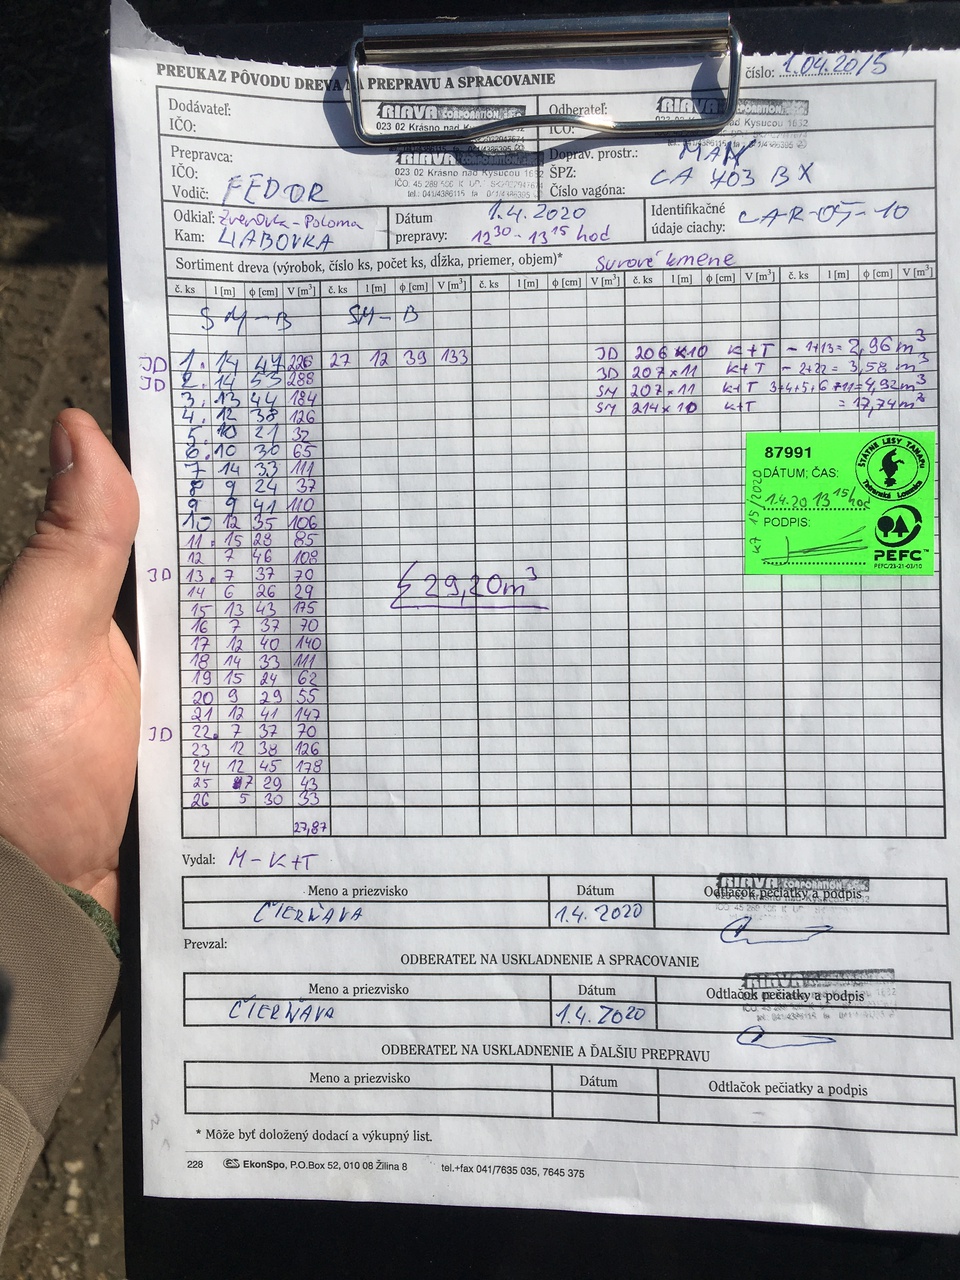 PREUKAZ PÔVODU DREVA NA PREPRAVU A SPRACOVANIE
číslo: 1.04.20/5
Dodávateľ:
IČO:
RIAVA CORPORATION
023 02 Krásno nad Kysucou
Odberateľ:
IČO:
RIAVA CORPORATION
023 02 Krásno nad Kysucou 1632
Prepravca:
IČO:
Vodič: FEDOR
RIAVA CORPORATION
023 02 Krásno nad Kysucou 1632
Doprav. prostr.: MAN
ŠPZ: CA 403 BX
Číslo vagóna:
Odkiaľ: Zverovka-Poloma
Kam: HABOVKA
Dátum
prepravy: 1.4.2020
12 30 - 13 15 hod
Identifikačné
údaje ciachy: CAR-05-10
Sortiment dreva (výrobok, číslo ks, počet ks, dĺžka, priemer, objem)* Surové kmene
č. ks l [m] ϕ [cm] V [m³] č. ks l [m] ϕ [cm] V [m³] č. ks l [m] ϕ [cm] V [m³] č. ks l [m] ϕ [cm] V [m³] č. ks l [m] ϕ [cm] V [m³]
SM-B SM-B
JD 1. 14 47 226 27 12 39 133 JD 206 x 10 K+T - 1+13 = 2,96 m³
JD 2. 14 53 288 JD 207 x 11 K+T - 2+22 = 3,58 m³
3. 13 44 184 SM 207 x 11 K+T 3+4+5+6+11 = 4,92 m³
4. 12 38 126 SM 214 x 10 K+T = 17,74 m³
5. 10 21 32
6. 10 30 65
7 14 33 111
8 9 24 37
9 9 41 110
10 12 35 106
11. 15 28 85
12 7 46 108
JD 13. 7 37 70
14 6 26 29
15 13 43 175
16 7 37 70
17 12 40 140
18 14 33 111
19 15 24 62
20 9 29 55
21 12 41 147
JD 22. 7 37 70
23 12 38 126
24 12 45 178
25 7 29 43
26 5 30 33
27,87
Σ 29,20 m³
87991
DÁTUM; ČAS:
1.4.20 13 15 hod
PODPIS:
K7 15/2020
ŠTÁTNE LESY TANAPU
Tatranská Lomnica
PEFC™
PEFC/23-21-03/10
Vydal: M-K+T
Meno a priezvisko Dátum Odtlačok pečiatky a podpis
ČIERŇAVA 1.4.2020
RIAVA CORPORATION
Prevzal:
ODBERATEĽ NA USKLADNENIE A SPRACOVANIE
Meno a priezvisko Dátum Odtlačok pečiatky a podpis
ČIERŇAVA 1.4.2020
RIAVA
ODBERATEĽ NA USKLADNENIE A ĎALŠIU PREPRAVU
Meno a priezvisko Dátum Odtlačok pečiatky a podpis
* Môže byť doložený dodací a výkupný list.
228 EkonSpo, P.O.Box 52, 010 08 Žilina 8 tel.+fax 041/7635 035, 7645 375